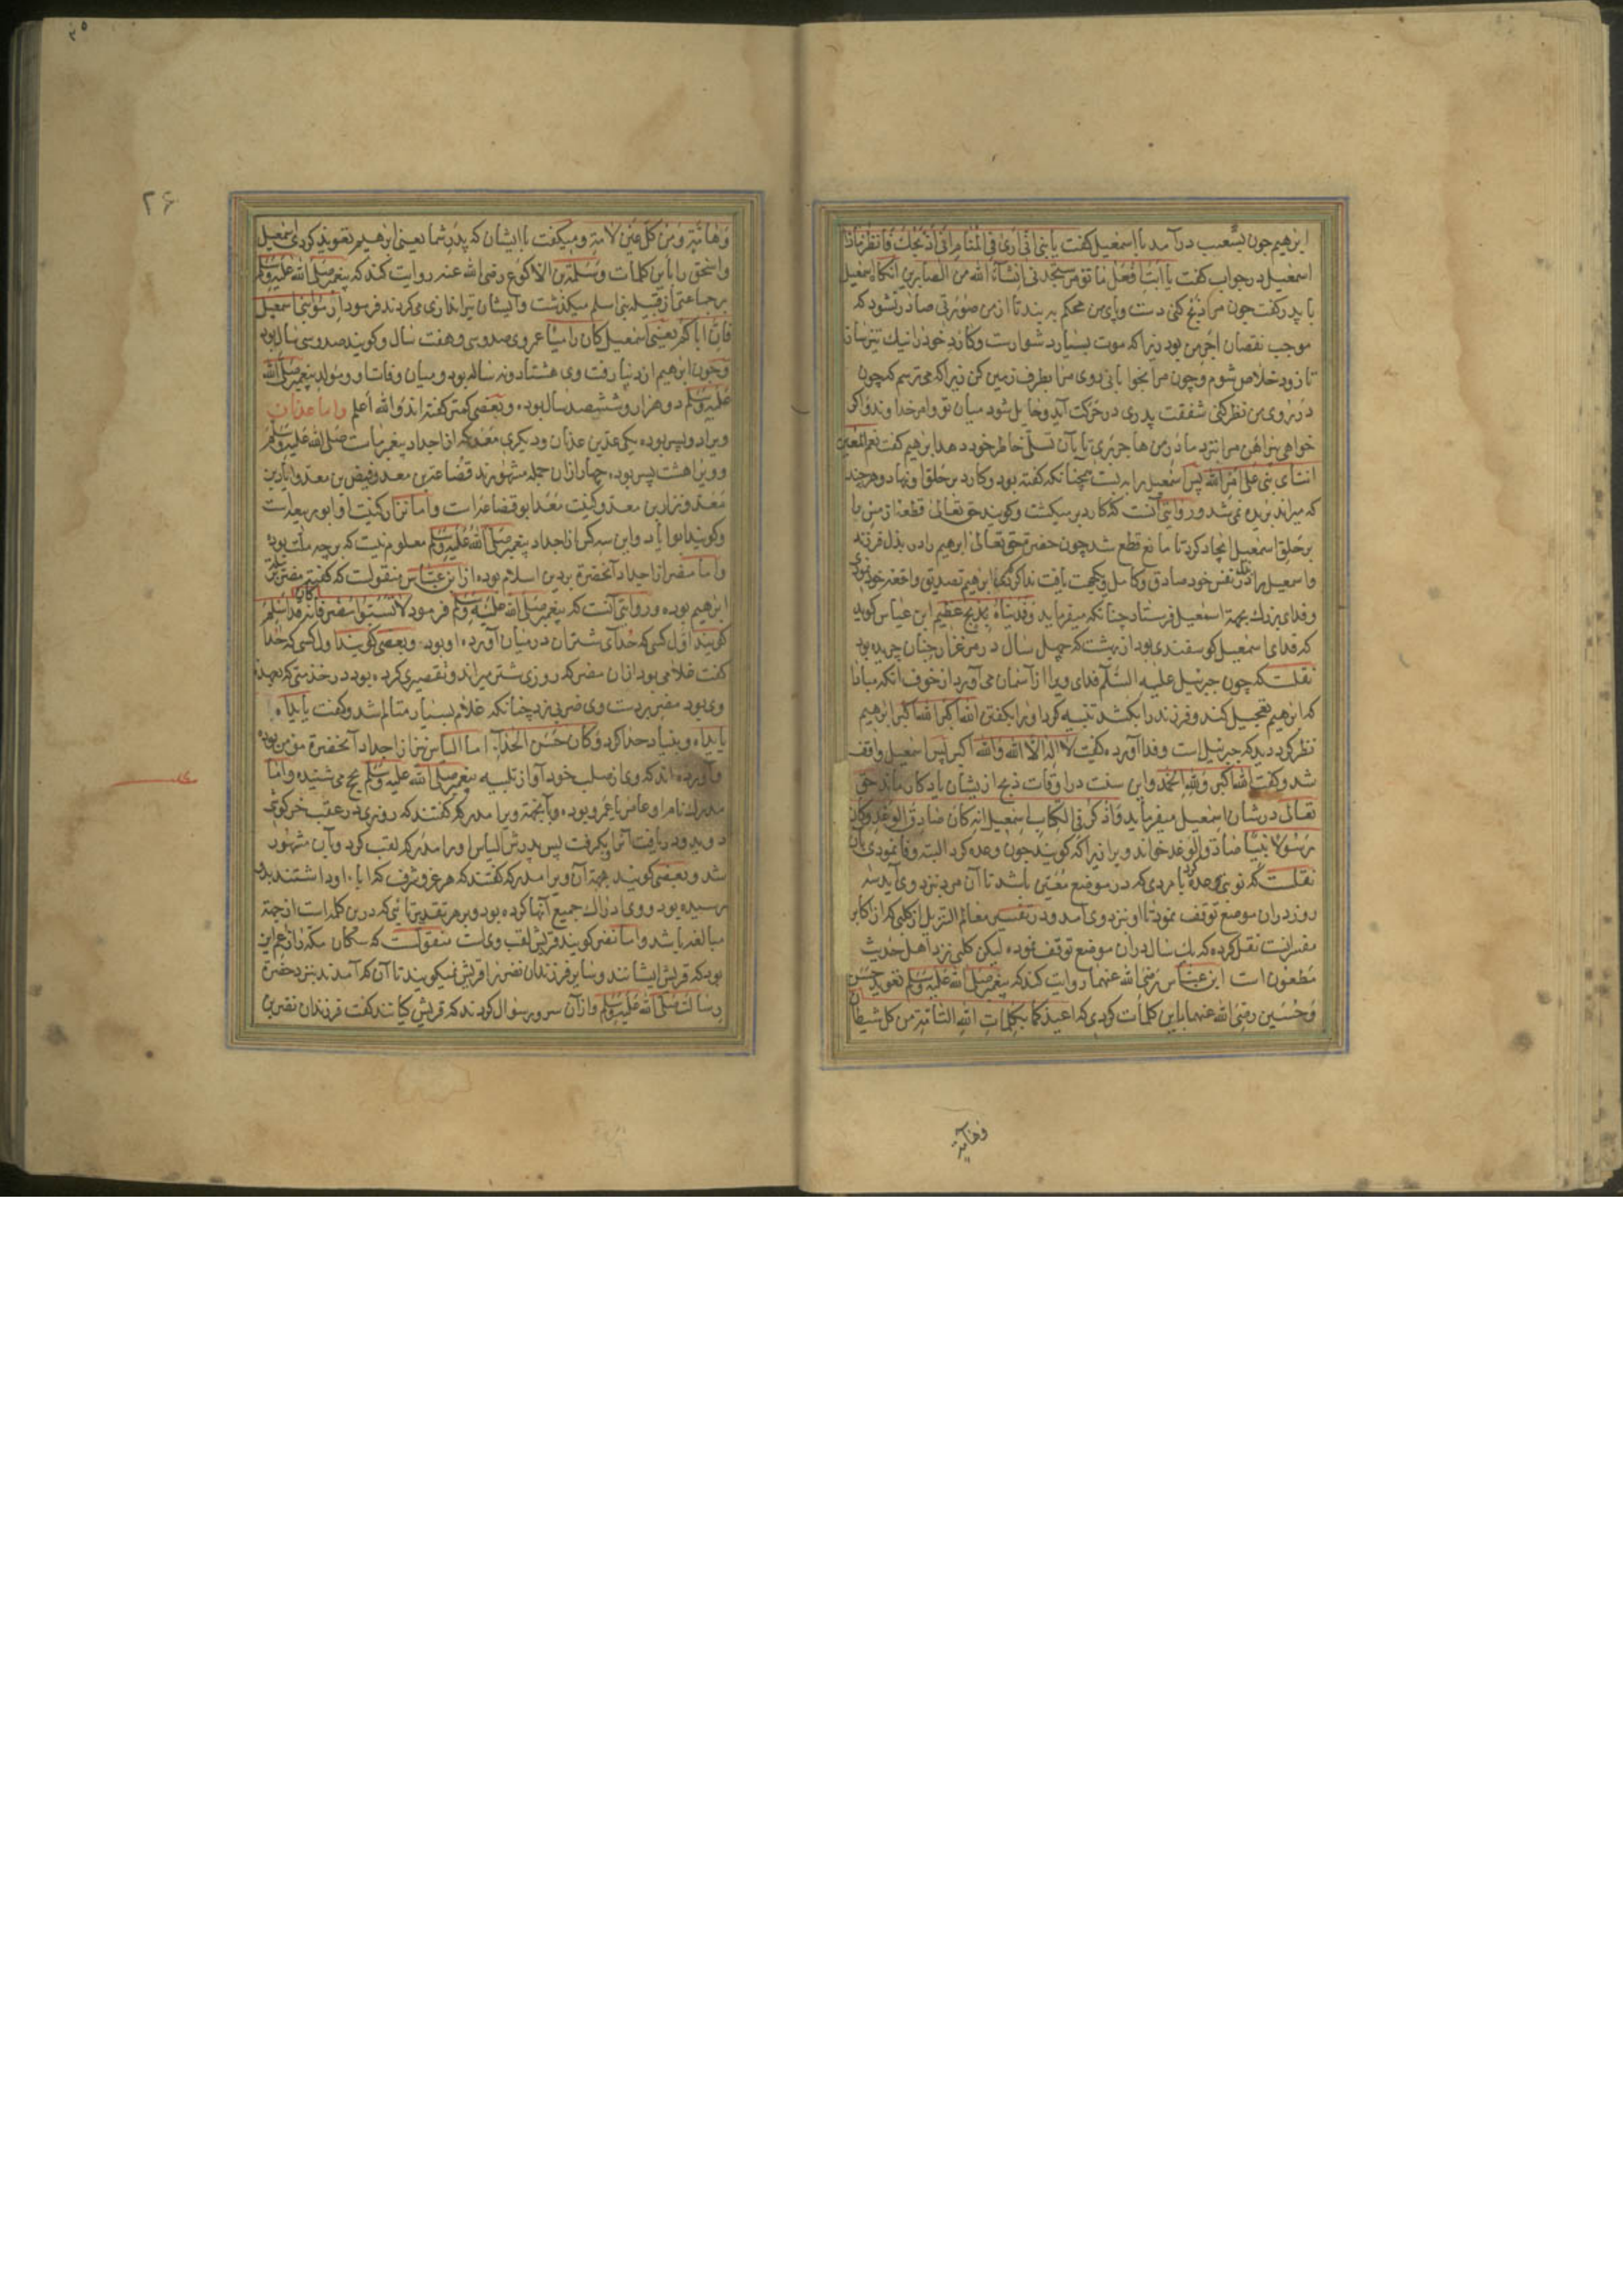 ابرهیم چون بشعیب درآمد با اسمعیل کفت یا بنی انی اری فی المنام انی اذبحک فانظر ماذا
اسمعیل در جواب کفت یا ابت افعل ما تؤمر ستجدنی انشاء الله من الصابرین آنکاه اسمعیل
با پدر کفت چون مرا ذبح کنی دست و پای من محکم به بند تا از من صورتی صادر نشود که
موجب نقصان اجر من بود زیرا که موت بسیار دشوارست و کارد خود را نیک تیز ساز
تا زود خلاص شوم و چون مرا بخوابانی روی مرا بطرف زمین کن زیرا که می ترسم که چون
در روی من نظر کنی شفقت پدری در حرکت آید و حایل شود میان تو و امر خداوند و اگر
خواهی پیراهن مرا نزد مادر من هاجر بری تا بآن تسلی خاطر خود دهد ابرهیم کفت نعم المعین
انت ای بنی علی امر الله پس اسمعیل را به بست همچنانکه کفته بود و کارد بر حلق او نهاد و هرچند
که میراند بریده نمی شد و روایتی آنست که کارد بر میکشت و کویند حق تعالی قطعهٔ از مس با
بر حلق اسمعیل ایجاد کرد تا مانع قطع شد چون حضرت حق تعالی ابرهیم را در بذل فرزند
و اسمعیل را در بذل نفس خود صادق و کامل یافت ندا کرد که ای ابرهیم تصدیق واقعهٔ خود نمودی
و فدای بزرک بجهة اسمعیل فرستاد چنانکه میفرماید وفدیناه بذبح عظیم ابن عباس کوید
که فدای اسمعیل کوسفندی بود از بهشت که چهل سال در مرغزار جنان چریده بود
نقلست که چون جبرئیل علیه السلم فدای ویرا از آسمان می آورد از خوف آنکه مبادا
که ابرهیم تعجیل کند و فرزند را بکشد تنبیه کرد او را بکفتن الله اکبر الله اکبر ابرهیم
نظر کرد دید که جبرئیل است و فدا آورده کفت لا اله الا الله والله اکبر پس اسمعیل واقف
شد و کفت الله اکبر ولله الحمد و این سنت در اوقات ذبح از یشان یادکار ماند حق
تعالی در شان اسمعیل میفرماید واذکر فی الکتاب اسمعیل انه کان صادق الوعد وکان
رسولا نبیا صادق الوعد خواند ویرا زیرا که کویند چون وعده کرد البته وفا نمودی بآن
نقلست که نوبتی وعده کرد با مردی که در موضع معین باشد تا آن مرد نزد وی آید سه
روز در آن موضع توقف نمود تا او نزد وی آمد و در تفسیر معالم التنزیل از کلبی که از اکابر
مفسرانست نقل کرده که یک سال در آن موضع توقف نموده لیکن کلبی نزد اهل حدیث
مطعون است ابن عباس رضی الله عنهما روایت کند که پیغمبر صلی الله علیه وسلم تعوید حسن
و حسین رضی الله عنهما باین کلمات کردی که اعیذکما بکلمات الله التامة من کل شیطان
وهامة
۲۶
وهامة ومن کل عین لامة و میکفت با ایشان که پدر شما یعنی ابرهیم تعوید کردی اسمعیل
و اسحق را باین کلمات و سلمة بن الاکوع رضی الله عنه روایت کند که پیغمبر صلی الله علیه وسلم
بر جماعتی از قبیله بنی اسلم میکذشت و ایشان تیراندازی می کردند فرمود ارموا بنی اسمعیل
فان اباکم یعنی اسمعیل کان رامیا عمر وی صد و سی و هفت سال و کویند صد و سی سال بود
و چون ابرهیم از دنیا رفت وی هشتاد و نه ساله بود و میان وفات او و مولد پیغمبر صلی الله
علیه وسلم دو هزار و ششصد سال بوده و بعضی کمتر کفته اند والله اعلم واما عدنان
ویرا دو پسر بوده یکی عک بن عدنان و دیکری معد که از اجداد پیغمبر ماست صلی الله علیه وسلم
و ویرا هشت پسر بوده چهار از آن جمله مشهورند قضاعة بن معد و قیض بن معد و ایاد بن
معد و نزار بن معد و کنیت معد ابو قضاعه است و اما نزار کنیت او ابو ربیعه است
و کویند ابو ایاد و این سه کس از اجداد پیغمبر صلی الله علیه وسلم معلوم نیست که بر چه ملت بوده
و اما مضر از اجداد آنحضرة بر دین اسلام بوده از ابن عباس منقولست که کفته مضر بر ملت
ابرهیم بوده و روایتی آنست که پیغمبر صلی الله علیه وسلم فرمود لا تسبوا مضر فانه کان قد اسلم
کویند اول کسی که حدا ی شتران در میان آورده او بود و بعضی کویند اول کسی که حدا
کفت غلامی بود از آن مضر که روزی شتر میراند و تقصیری کرده بود در خدمتی که بعهدهٔ
وی بود مضر بر دست وی ضربی زد چنانکه غلام بسیار متالم شد و کفت یا یداه
یا یداه و بنیاد حدا کرد وکان حسن الحدآء اما الیاس نیز از اجداد آنحضرة مؤمن بوده
و آورده اند که وی از صلب خود آواز تلبیه پیغمبر صلی الله علیه وسلم بحج می شنیده و اما
مدرکه نام او عامر یا عمرو بوده و بآنجهة ویرا مدرکه کفتند که روزی در عقب خرکوشی
دوید و دریافت آنرا بکرفت پس پدرش الیاس او را مدرکه لقب کرد و بآن مشهور
شد و بعضی کویند بجهة آن ویرا مدرکه کفتند که هر عز و شرف که ابآء او داشتند بدو
رسیده بود و وی ادراک جمیع آنها کرده بود و بر هر تقدیر تائی که درین کلمه است از جهة
مبالغه باشد و اما نضر کویند قریش لقب وی است منقولست که سکان مکه را زعم این
بود که قریش ایشانند و سایر فرزندان نضر را قریش نمیکویند تا آن که آمدند بنزد حضرة
رسالت صلی الله علیه وسلم و از آن سرور سوال کردند که قریش کیانند کفت فرزندان نضر بن